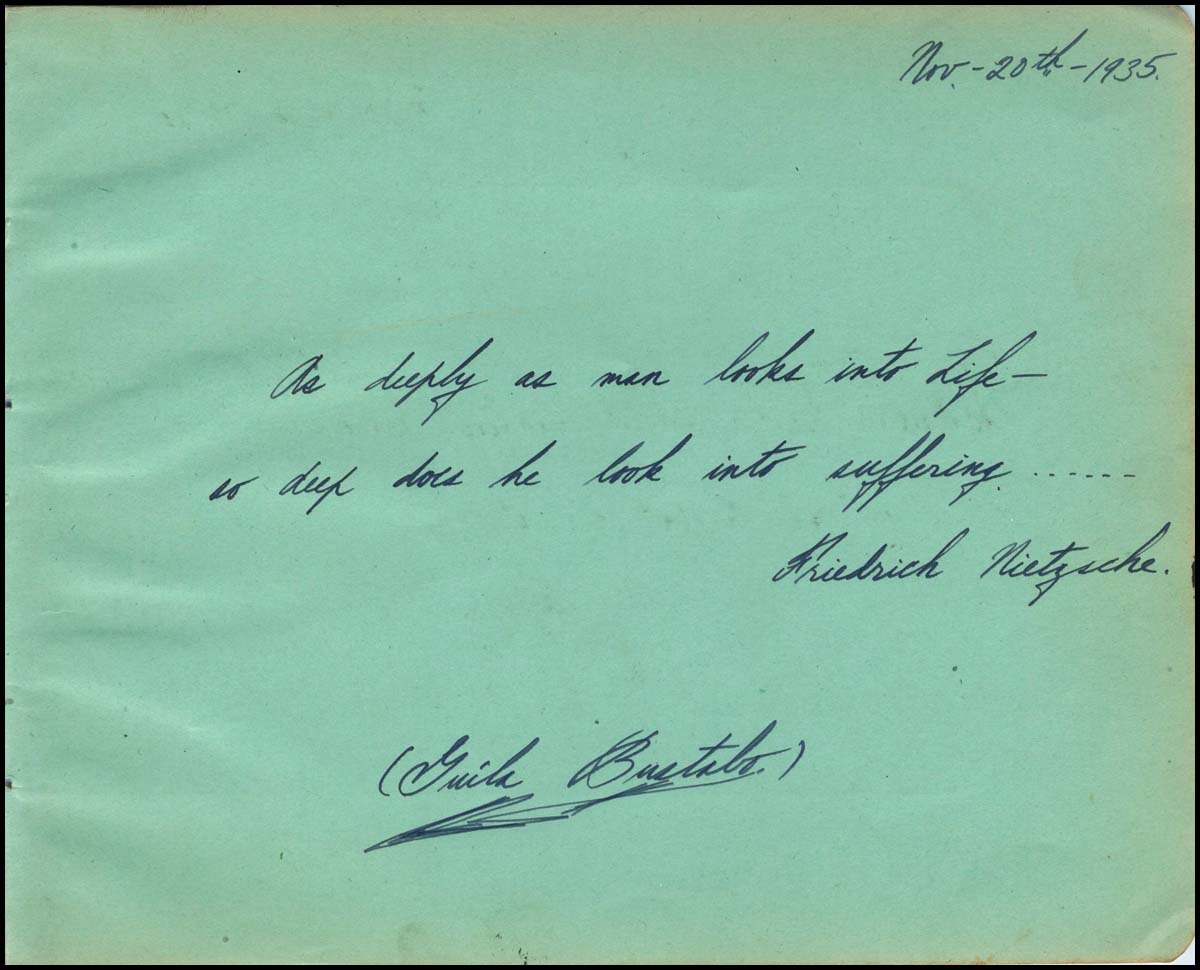 Nov. - 20th - 1935.
As deeply as man looks into Life —
so deep does he look into suffering ......
Friedrich Nietzsche.
(Guila Bustabo.)